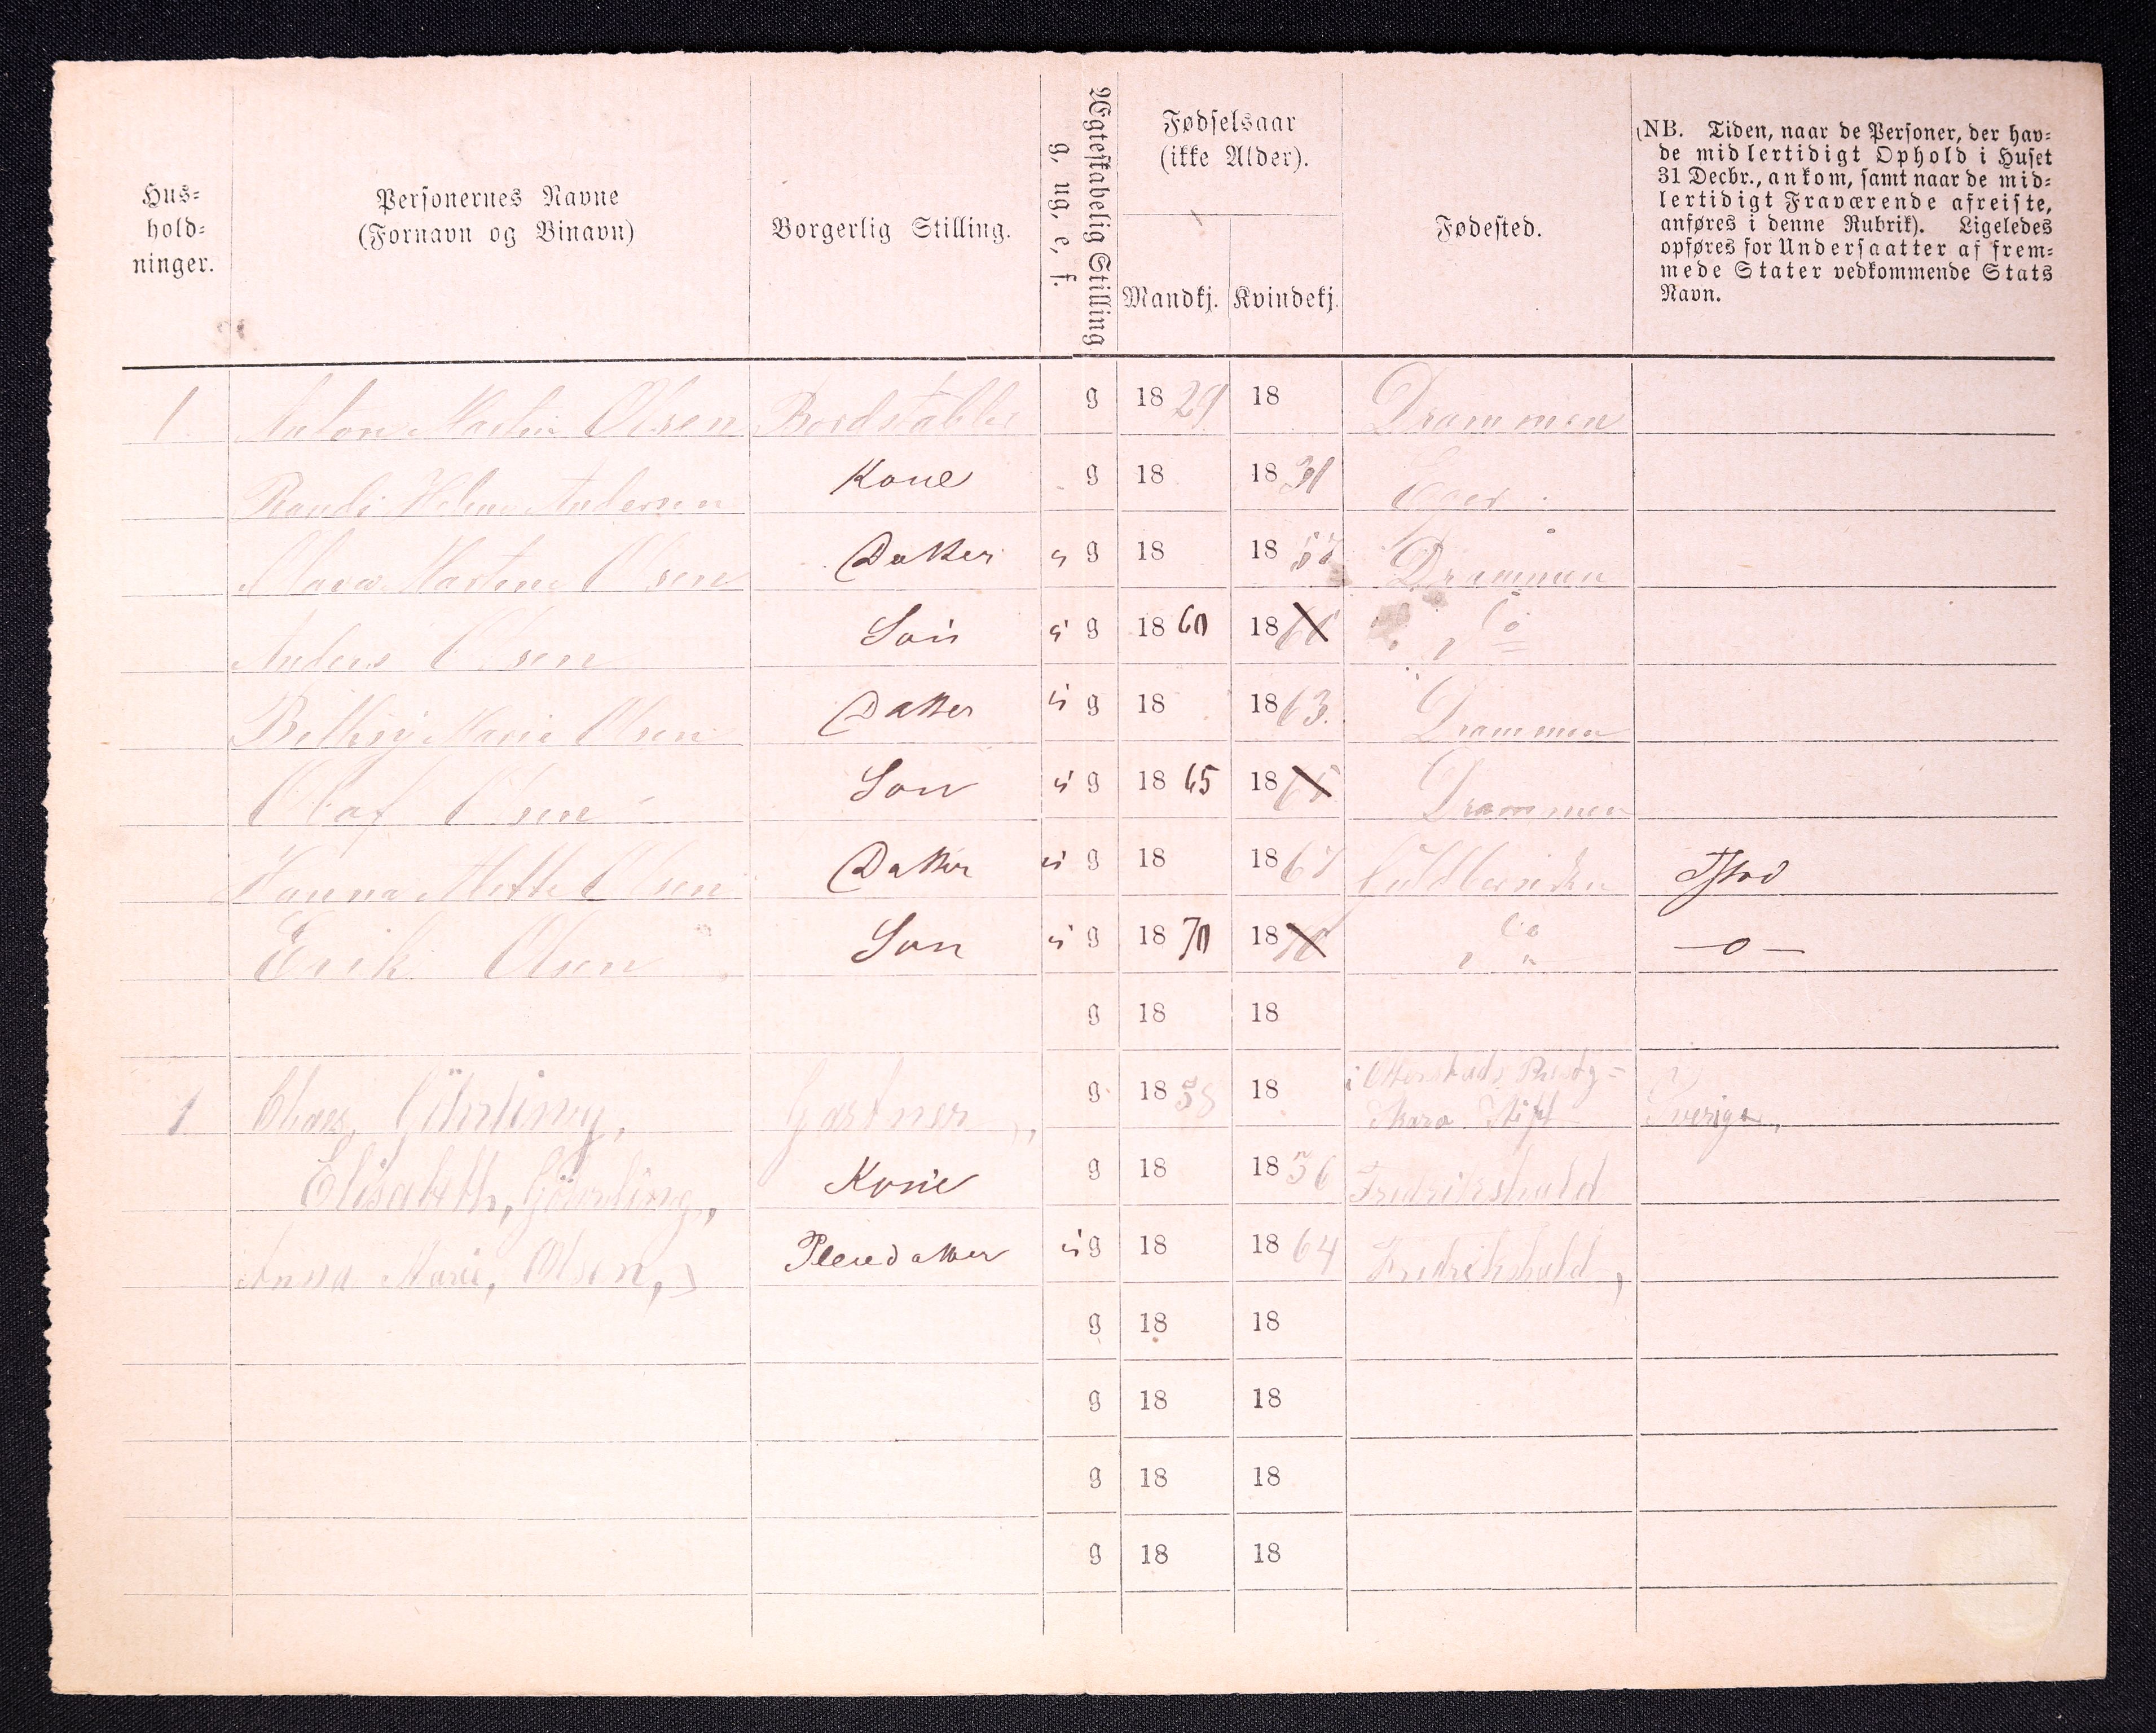 Hus=
hold=
ninger.
Personernes Navne
(Fornavn og Binavn)
Borgerlig Stilling.
Ægteskabelig Stilling
g, ug, e, f.
Fødselsaar
(ikke Alder).
Mandkj. Kvindekj.
Fødested.
(NB. Tiden, naar de Personer, der hav=
de midlertidigt Ophold i Huset
31 Decbr., ankom, samt naar de mid=
lertidigt Fraværende afreiste,
anføres i denne Rubrik). Ligeledes
opføres for Undersaatter af frem=
mede Stater vedkommende Stats
Navn.
1 Anton Martin Olsen g 1829 18 Drammen
Randi Andersen Kone g 18 18 Eger
Martine Olsen Datter u g 18 18 57 Drammen
Anders Olsen Søn u g 18 60 18 Do
Marie Olsen Datter u g 18 18 63. Drammen
Olaf Olsen Søn u g 18 65 18 65 Drammen
Hanna Olsen Datter u g 18 18 67
Erik Olsen Søn u g 18 70 18 70 Do —o—
g 18 18
1 Gartner g 18 18 i Skara Stift Sverige,
Elisabeth, Kone g 18 18 36 Fredrikshald
Anna Marie, Olsen, Pleiedatter u g 18 18 64 Fredrikshald,
g 18 18
g 18 18
g 18 18
g 18 18